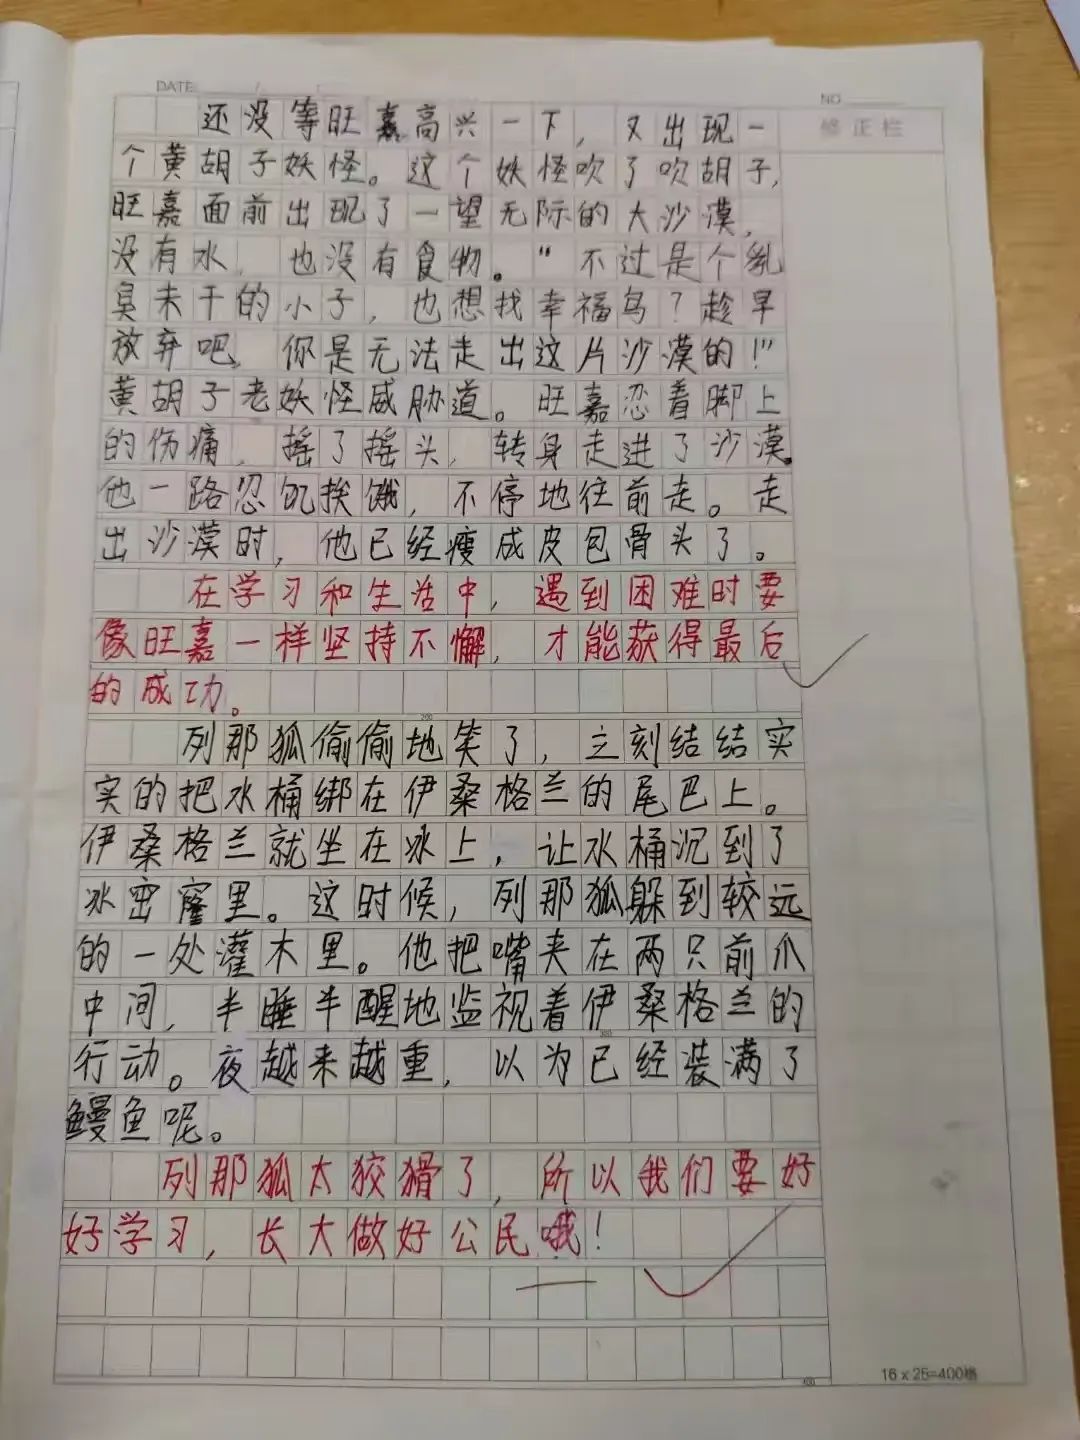 DATE
NO
修正栏
还没等旺嘉高兴一下，又出现一
个黄胡子妖怪。这个妖怪吹了吹胡子，
旺嘉面前出现了一望无际的大沙漠，
没有水，也没有食物。“不过是个乳
臭未干的小子，也想找幸福鸟？趁早
放弃吧，你是无法走出这片沙漠的！”
黄胡子老妖怪威胁道。旺嘉忍着脚上
的伤痛，摇了摇头，转身走进了沙漠。
他一路忍饥挨饿，不停地往前走。走
出沙漠时，他已经瘦成皮包骨头了。
在学习和生活中，遇到困难时要
像旺嘉一样坚持不懈，才能获得最后
的成功。
200
列那狐偷偷地笑了，立刻结结实
实的把水桶绑在伊桑格兰的尾巴上。
伊桑格兰就坐在冰上，让水桶沉到了
冰窟窿里。这时候，列那狐躲到较远
的一处灌木里。他把嘴夹在两只前爪
中间，半睡半醒地监视着伊桑格兰的
300
行动。夜越来越重，以为已经装满了
鳗鱼呢。
列那狐太狡猾了，所以我们要好
好学习，长大做好公民哦！
16 x 25=400格
400